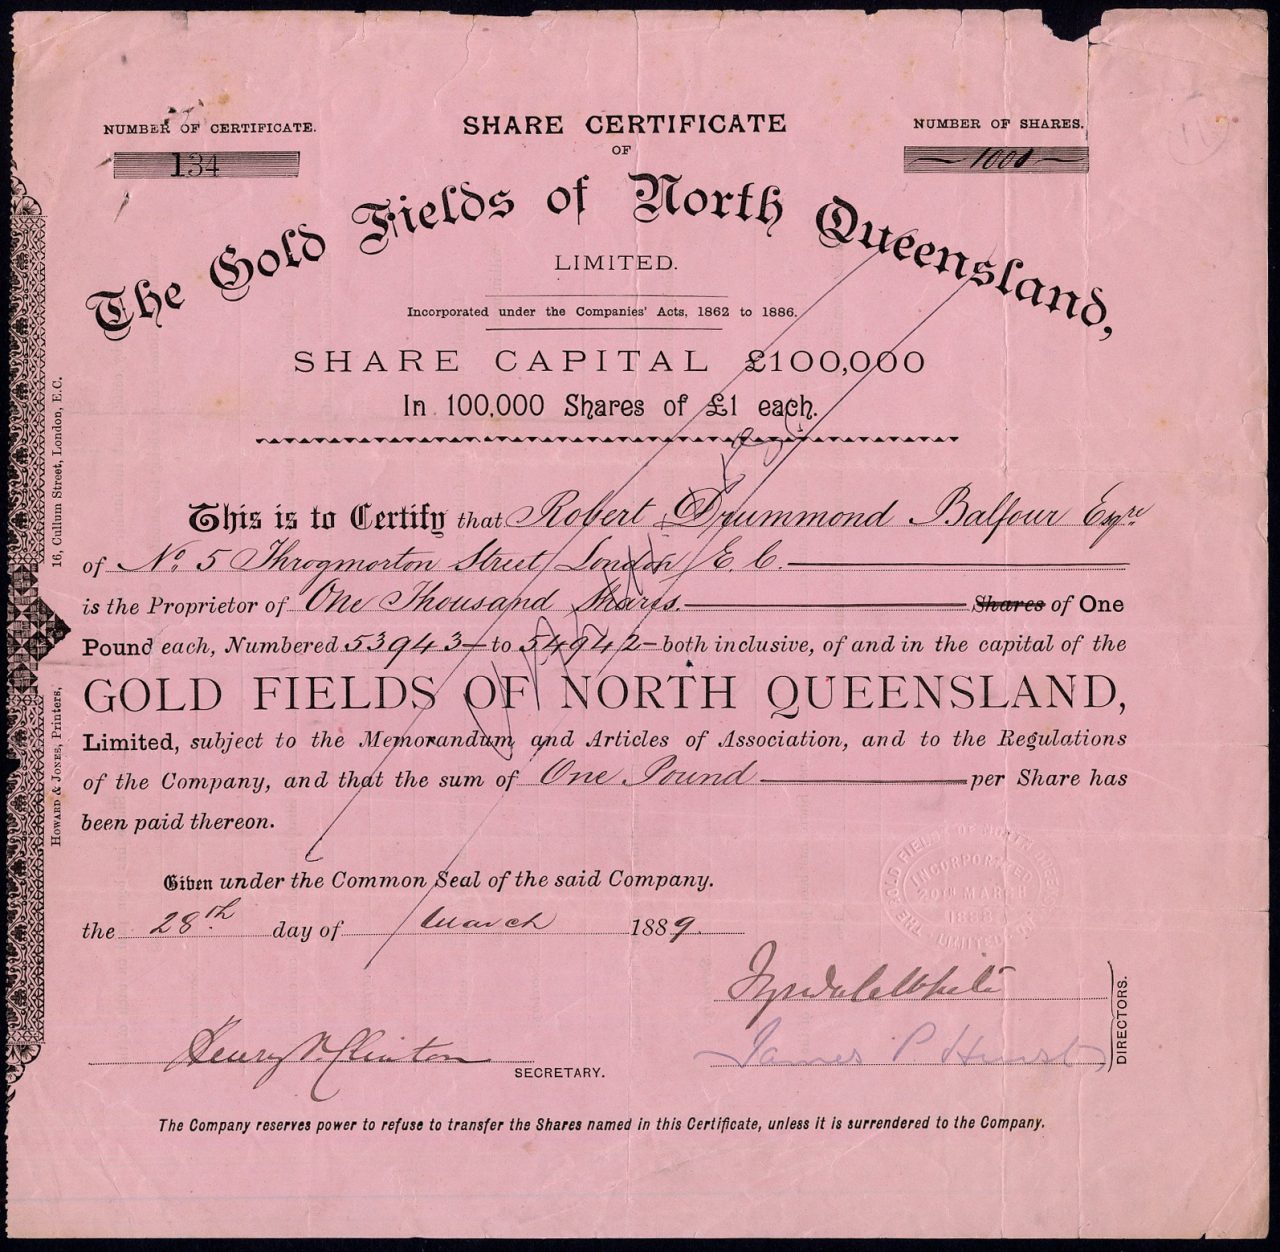 NUMBER OF CERTIFICATE.
134
SHARE CERTIFICATE
OF
NUMBER OF SHARES.
1000
11
The Gold Fields of North Queensland,
LIMITED.
Incorporated under the Companies' Acts, 1862 to 1886.
SHARE CAPITAL £100,000
In 100,000 Shares of £1 each.
This is to Certify that Robert Drummond Balfour Esqre
of No. 5 Throgmorton Street London E. C.
is the Proprietor of One Thousand Shares. Shares of One
Pound each, Numbered 53943 to 54942 both inclusive, of and in the capital of the
GOLD FIELDS OF NORTH QUEENSLAND,
Limited, subject to the Memorandum and Articles of Association, and to the Regulations
of the Company, and that the sum of One Pound per Share has
been paid thereon.
Given under the Common Seal of the said Company.
the 28th day of March 1889.
THE GOLD FIELDS OF NORTH QUEENSLAND LIMITED
INCORPORATED
20TH MARCH
1888
DIRECTORS.
James P Hurst
Henry Clinton
SECRETARY.
The Company reserves power to refuse to transfer the Shares named in this Certificate, unless it is surrendered to the Company.
HOWARD & JONES, Printers, 16, Cullum Street, London, E.C.